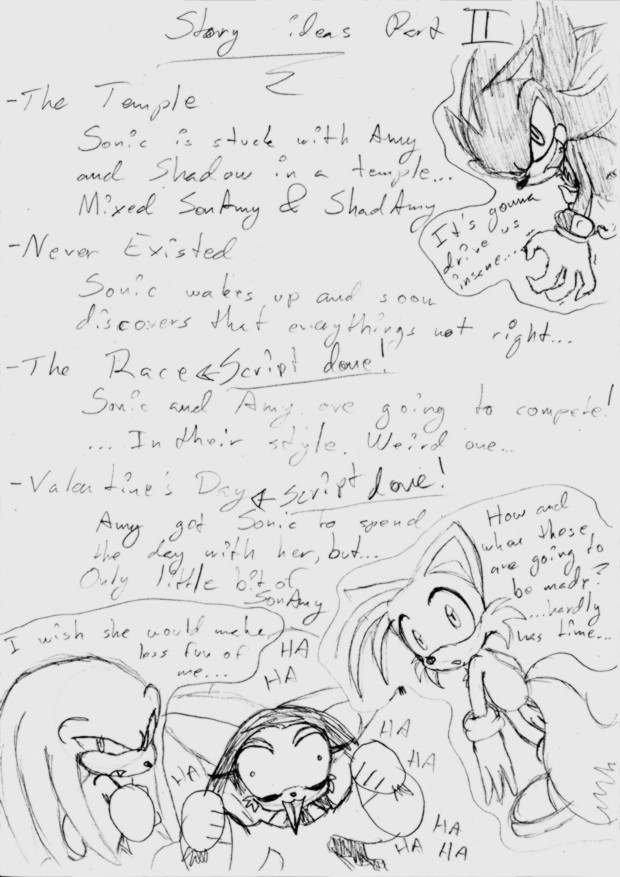 Story ideas Part II
- The Temple
Sonic is stuck with Amy
and Shadow in a temple...
Mixed SonAmy & ShadAmy
It's gonna
drive us
insane...
- Never Existed
Sonic wakes up and soon
discovers that everythings not right...
- The Race ← Script done!
Sonic and Amy are going to compete!
... In their style. Weird one...
- Valentine's Day ← Script done!
Amy got Sonic to spend
the day with her, but...
Only little bit of
SonAmy
How and
when those
are going to
be made?
...hardly
has time...
I wish she would make
less fun of
me...
HA
HA
HA
HA
HA
HA
HA
HA
HA